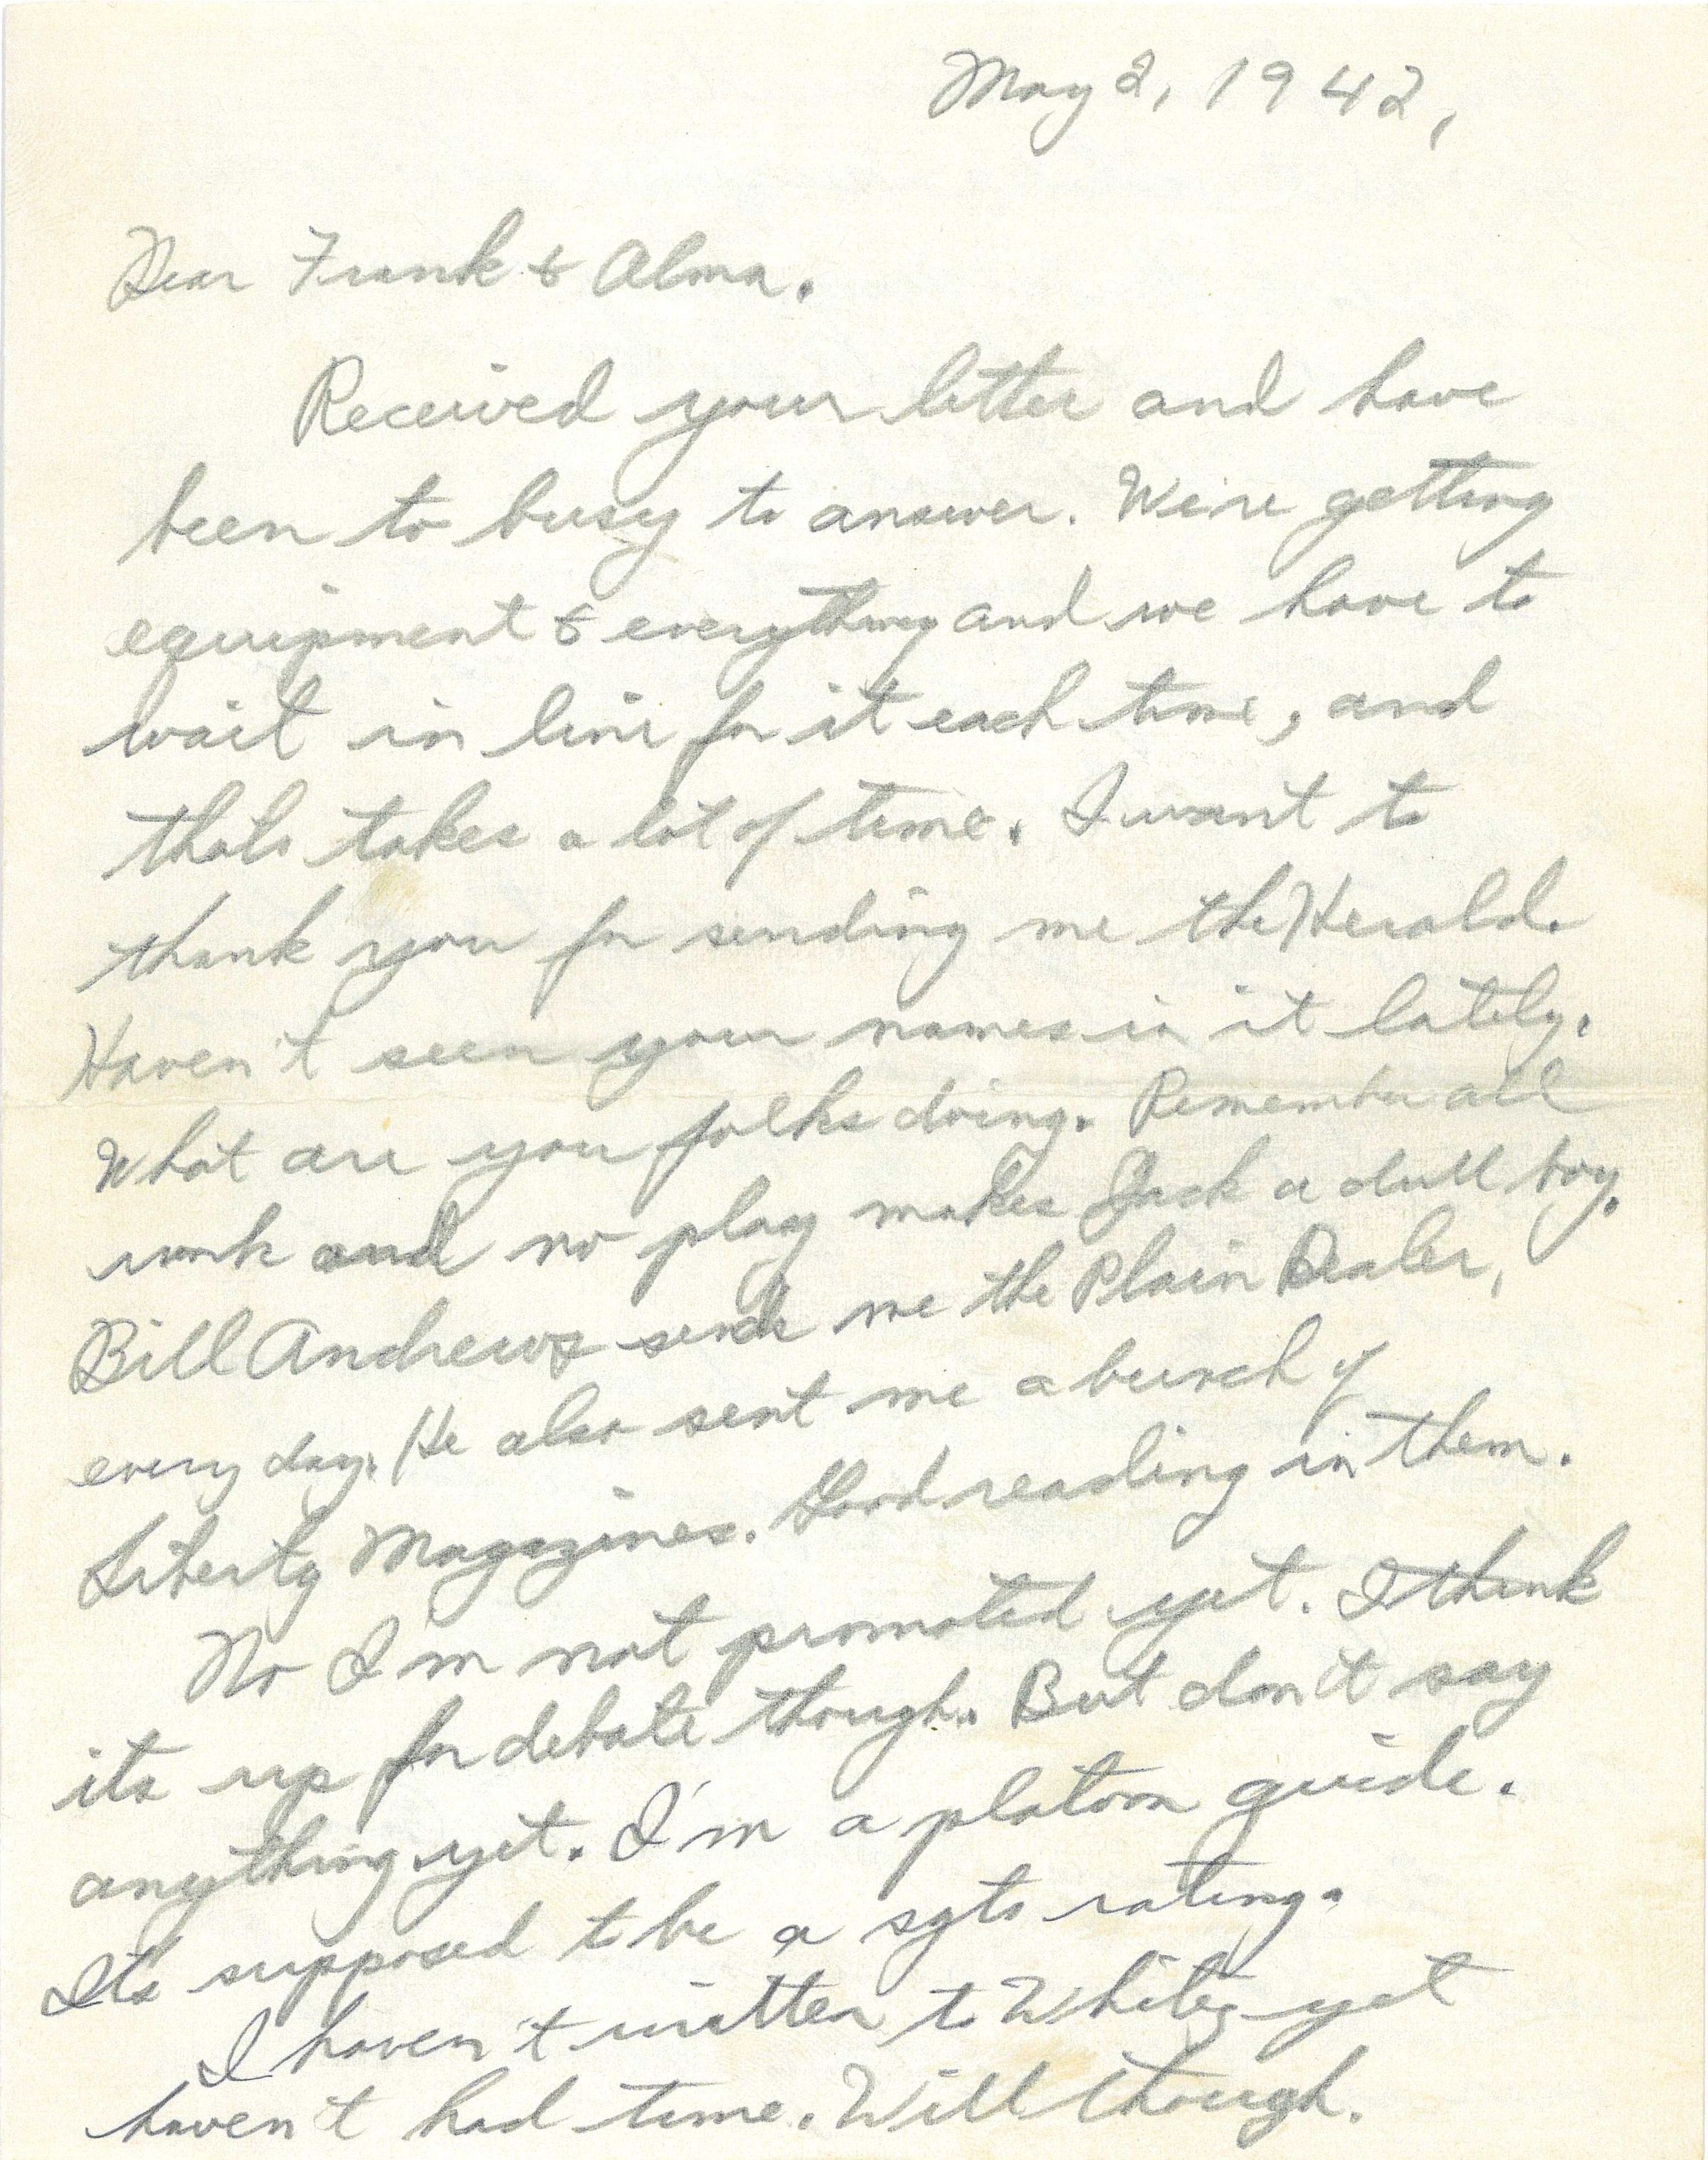 May 2, 1942,
Dear Frank & Alma.
Received your letter and have
been to busy to answer. We're getting
equipment & everything and we have to
wait in line for it each time, and
thats takes a lot of time. I want to
thank you for sending me the Herald.
Haven't seen your names in it lately.
What are you folks doing. Remember all
work and no play makes Jack a dull boy.
Bill Andrews sends me the Plain Dealer,
every day. He also sent me a bunch of
Liberty Magazines. Good reading in them.
No I'm not promoted yet. I think
its up for debate though. But don't say
anything yet. I'm a platoon guide.
Its supposed to be a sgts rating.
I haven't written to Whitey yet
haven't had time. Will though.